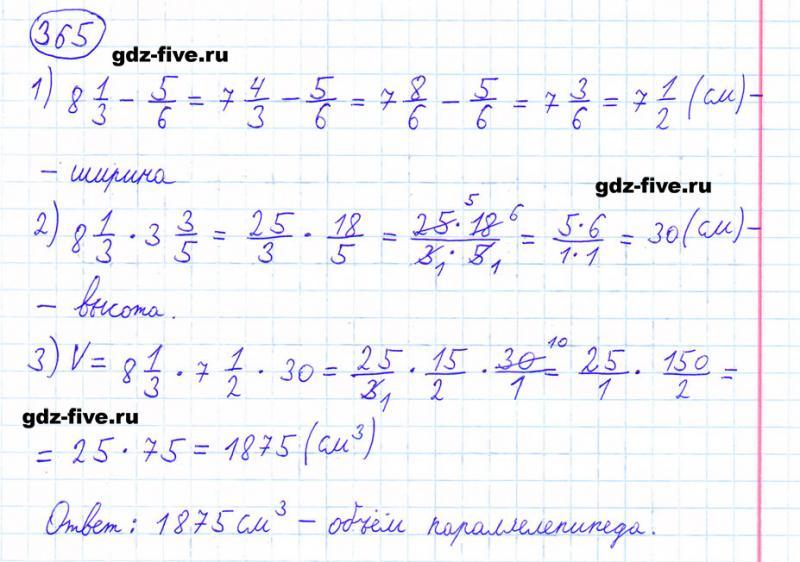 365
gdz-five.ru
1) 8 1/3 - 5/6 = 7 4/3 - 5/6 = 7 8/6 - 5/6 = 7 3/6 = 7 1/2 (см) -
- ширина
gdz-five.ru
2) 8 1/3 · 3 3/5 = 25/3 · 18/5 = 25 5 · 18 6 / 3 1 · 5 1 = 5·6/1·1 = 30 (см) -
- высота.
3) V = 8 1/3 · 7 1/2 · 30 = 25/3 1 · 15/2 · 30 10/1 = 25/1 · 150/2 =
gdz-five.ru
= 25 · 75 = 1875 (см³)
Ответ: 1875 см³ - объём параллелепипеда.